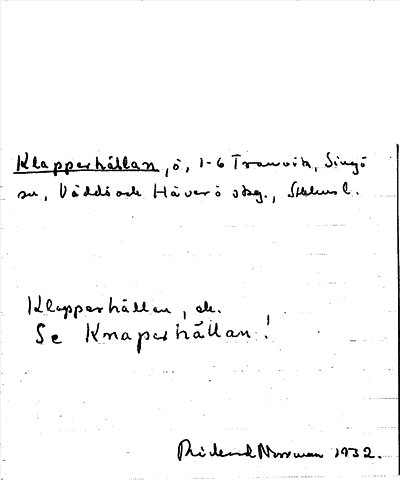 Klapperhällan, ö, 1-6 Tranvik, Singö
sn, Väddö och Häverö skg., Sthlms l.
Klapperhällan, ek.
Se Knaperhällan!
Rickard Norrman 1932.